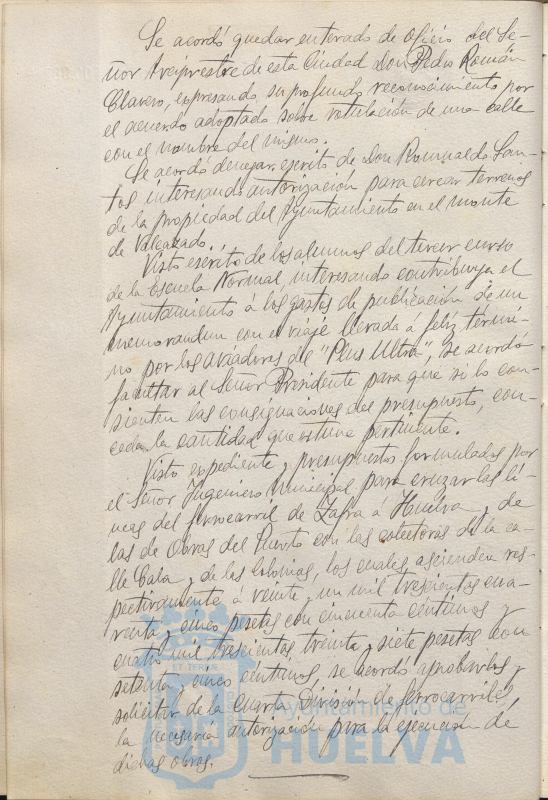 Se acordó quedar enterado de oficio del Se-
ñor Arcipreste de esta Ciudad Don Pedro Román
Clavero, expresando su profundo reconocimiento por
el acuerdo adoptado sobre rotulación de una calle
con el nombre del mismo.
Se acordó denegar escrito de Don Romualdo San-
tos interesando autorización para cercar terrenos
de la propiedad del Ayuntamiento en el monte
de Valcazado.
Visto escrito de los alumnos del tercer curso
de la Escuela Normal, interesando contribuya el
Ayuntamiento á los gastos de publicación de un
memorandum con el viaje llevada á feliz térmi-
no por los aviadores del "Plus Ultra", se acordó
facultar al Señor Presidente para que si lo con-
sienten las consignaciones del presupuesto, con-
ceda la cantidad que estime pertinente.
Visto expediente y presupuestos formulados por
el Señor Ingeniero Municipal para cruzar las lí-
neas del ferrocarril de Zafra á Huelva y de
las de Obras del Puerto con las colectoras de la ca-
lle Cala y de las Colonias, los cuales ascienden res-
pectivamente á veinte y un mil trescientas cua-
renta y cinco pesetas con cincuenta céntimos y
cuatro mil trescientas treinta y siete pesetas con
setenta y cinco céntimos, se acordó aprobarlos y
solicitar de la Cuarta División de ferrocarriles,
la necesaria autorización para la ejecución de
dichas obras.
Ayuntamiento de
HUELVA